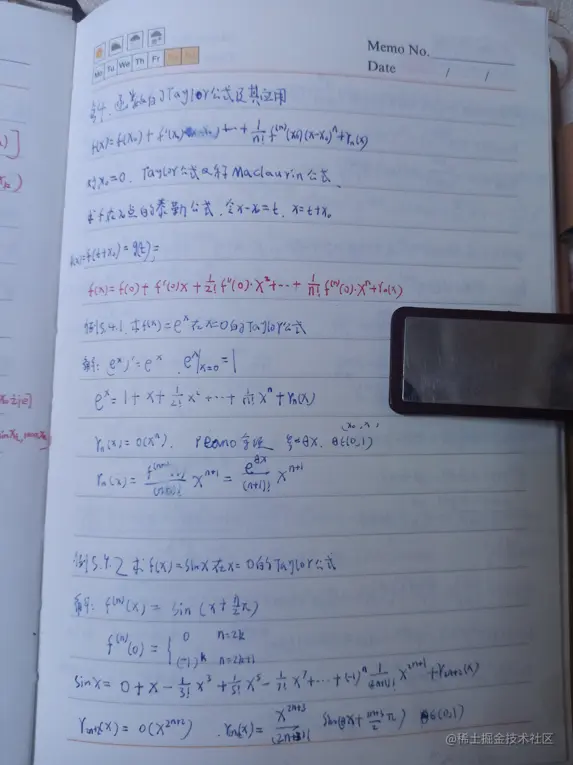 Memo No.
Mo Tu We Th Fr
Date / /
§4. 函数的Taylor公式及其应用
f(x)=f(x₀)+f'(x₀) +⋯+ 1/n! f⁽ⁿ⁾(x₀)(x-x₀)ⁿ+rₙ(x)
对x₀=0. Taylor公式又称Maclaurin公式.
求f在x₀点的泰勒公式. 令x-x₀=t. x=t+x₀
f(x)=f(t+x₀)=g(t);
f(x)=f(0)+f'(0)x+1/2! f''(0)·x²+⋯+1/n! f⁽ⁿ⁾(0)·xⁿ+rₙ(x)
例5.4.1. 求f(x)=eˣ在x=0的Taylor公式
解: (eˣ)'=eˣ. eˣ|ₓ₌₀=1
eˣ=1+x+1/2! x²+⋯+1/n! xⁿ+rₙ(x)
rₙ(x)=o(xⁿ). peano余项 ξ=θx. θ∈(0,1)
rₙ(x)= xⁿ⁺¹= e^(θx)/(n+1)! xⁿ⁺¹
例5.4.2 求f(x)=sinx在x=0的Taylor公式
解: f⁽ⁿ⁾(x)=sin(x+n/2 π)
f⁽ⁿ⁾(0)={ 0 n=2k
(-1)ᵏ n=2k+1
sinx=0+x-1/3! x³+1/5! x⁵-1/7! x⁷+⋯+(-1)ⁿ x²ⁿ⁺¹+r₂ₙ₊₂(x)
r₂ₙ₊₂(x)=o(x²ⁿ⁺²) θ∈(0,1)
@稀土掘金技术社区